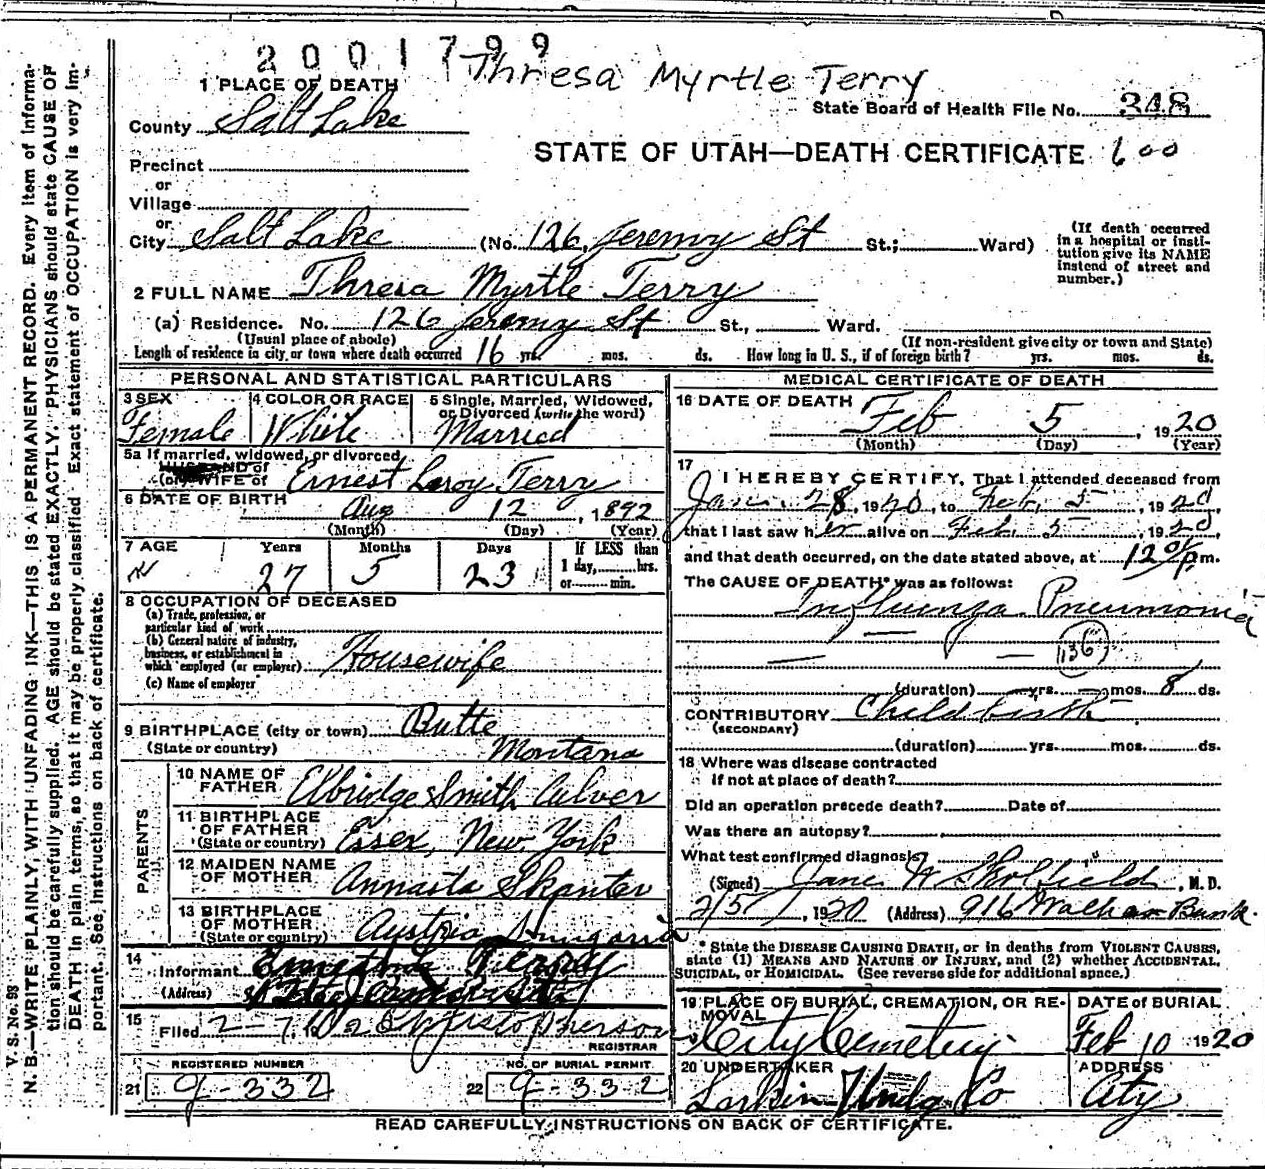 2001799
Thresa Myrtle Terry
1 PLACE OF DEATH
State Board of Health File No. 348
County Salt Lake
STATE OF UTAH—DEATH CERTIFICATE 600
Precinct
or
Village
or
City Salt Lake (No. 126, Jeremy St St.; Ward)
(If death occurred in a hospital or insti-
tution give its NAME instead of street and number.)
2 FULL NAME Thresa Myrtle Terry
(a) Residence. No. 126 Jeremy St St., Ward.
(Usual place of abode) (If non-resident give city or town and State)
Length of residence in city or town where death occurred 16 yrs. mos. ds. How long in U. S., if of foreign birth? yrs. mos. ds.
PERSONAL AND STATISTICAL PARTICULARS
3 SEX Female
4 COLOR OR RACE White
5 Single, Married, Widowed, or Divorced (write the word) Married
5a If married, widowed, or divorced
HUSBAND of
(or) WIFE of Ernest Leroy Terry
6 DATE OF BIRTH Aug 12, 1892
(Month) (Day) (Year)
7 AGE Years 27 Months 5 Days 23
If LESS than 1 day, hrs. or min.
8 OCCUPATION OF DECEASED
(a) Trade, profession, or particular kind of work
(b) General nature of industry, business, or establishment in which employed (or employer) Housewife
(c) Name of employer
9 BIRTHPLACE (city or town) Butte
(State or country) Montana
PARENTS
10 NAME OF FATHER Elbridge Smith Culver
11 BIRTHPLACE OF FATHER (State or country) Essex, New York
12 MAIDEN NAME OF MOTHER Annasta Skanter
13 BIRTHPLACE OF MOTHER (State or country) Austria Hungaria
14 Informant
(Address)
15 Filed 2-7
REGISTRAR
REGISTERED NUMBER
21 9-332
NO. OF BURIAL PERMIT
22 9-332
MEDICAL CERTIFICATE OF DEATH
16 DATE OF DEATH Feb 5, 1920
(Month) (Day) (Year)
17 I HEREBY CERTIFY, That I attended deceased from
Jan. 28, 1920, to Feb. 5, 1920
that I last saw her alive on Feb. 5, 1920
and that death occurred, on the date stated above, at 12 p m.
The CAUSE OF DEATH* was as follows:
Influenza Pneumonia
136
(duration) — yrs. — mos. 8 ds.
CONTRIBUTORY Childbirth
(SECONDARY)
(duration) yrs. mos. ds.
18 Where was disease contracted
if not at place of death?
Did an operation precede death? Date of
Was there an autopsy?
What test confirmed diagnosis?
(Signed) Jane W Skolfield, M. D.
2/5, 1920 (Address) 916 Walker Bank.
* State the DISEASE CAUSING DEATH, or in deaths from VIOLENT CAUSES,
state (1) MEANS AND NATURE OF INJURY, and (2) whether ACCIDENTAL,
SUICIDAL, or HOMICIDAL. (See reverse side for additional space.)
19 PLACE OF BURIAL, CREMATION, OR RE-
MOVAL City Cemetery
DATE OF BURIAL Feb 10 1920
20 UNDERTAKER Larkin Undg Co
ADDRESS City
READ CAREFULLY INSTRUCTIONS ON BACK OF CERTIFICATE.
V. S. No. 93
N. B.—WRITE PLAINLY, WITH UNFADING INK—THIS IS A PERMANENT RECORD. Every item of informa-
tion should be carefully supplied. AGE should be stated EXACTLY. PHYSICIANS should state CAUSE OF
DEATH in plain terms, so that it may be properly classified. Exact statement of OCCUPATION is very im-
portant. See instructions on back of certificate.